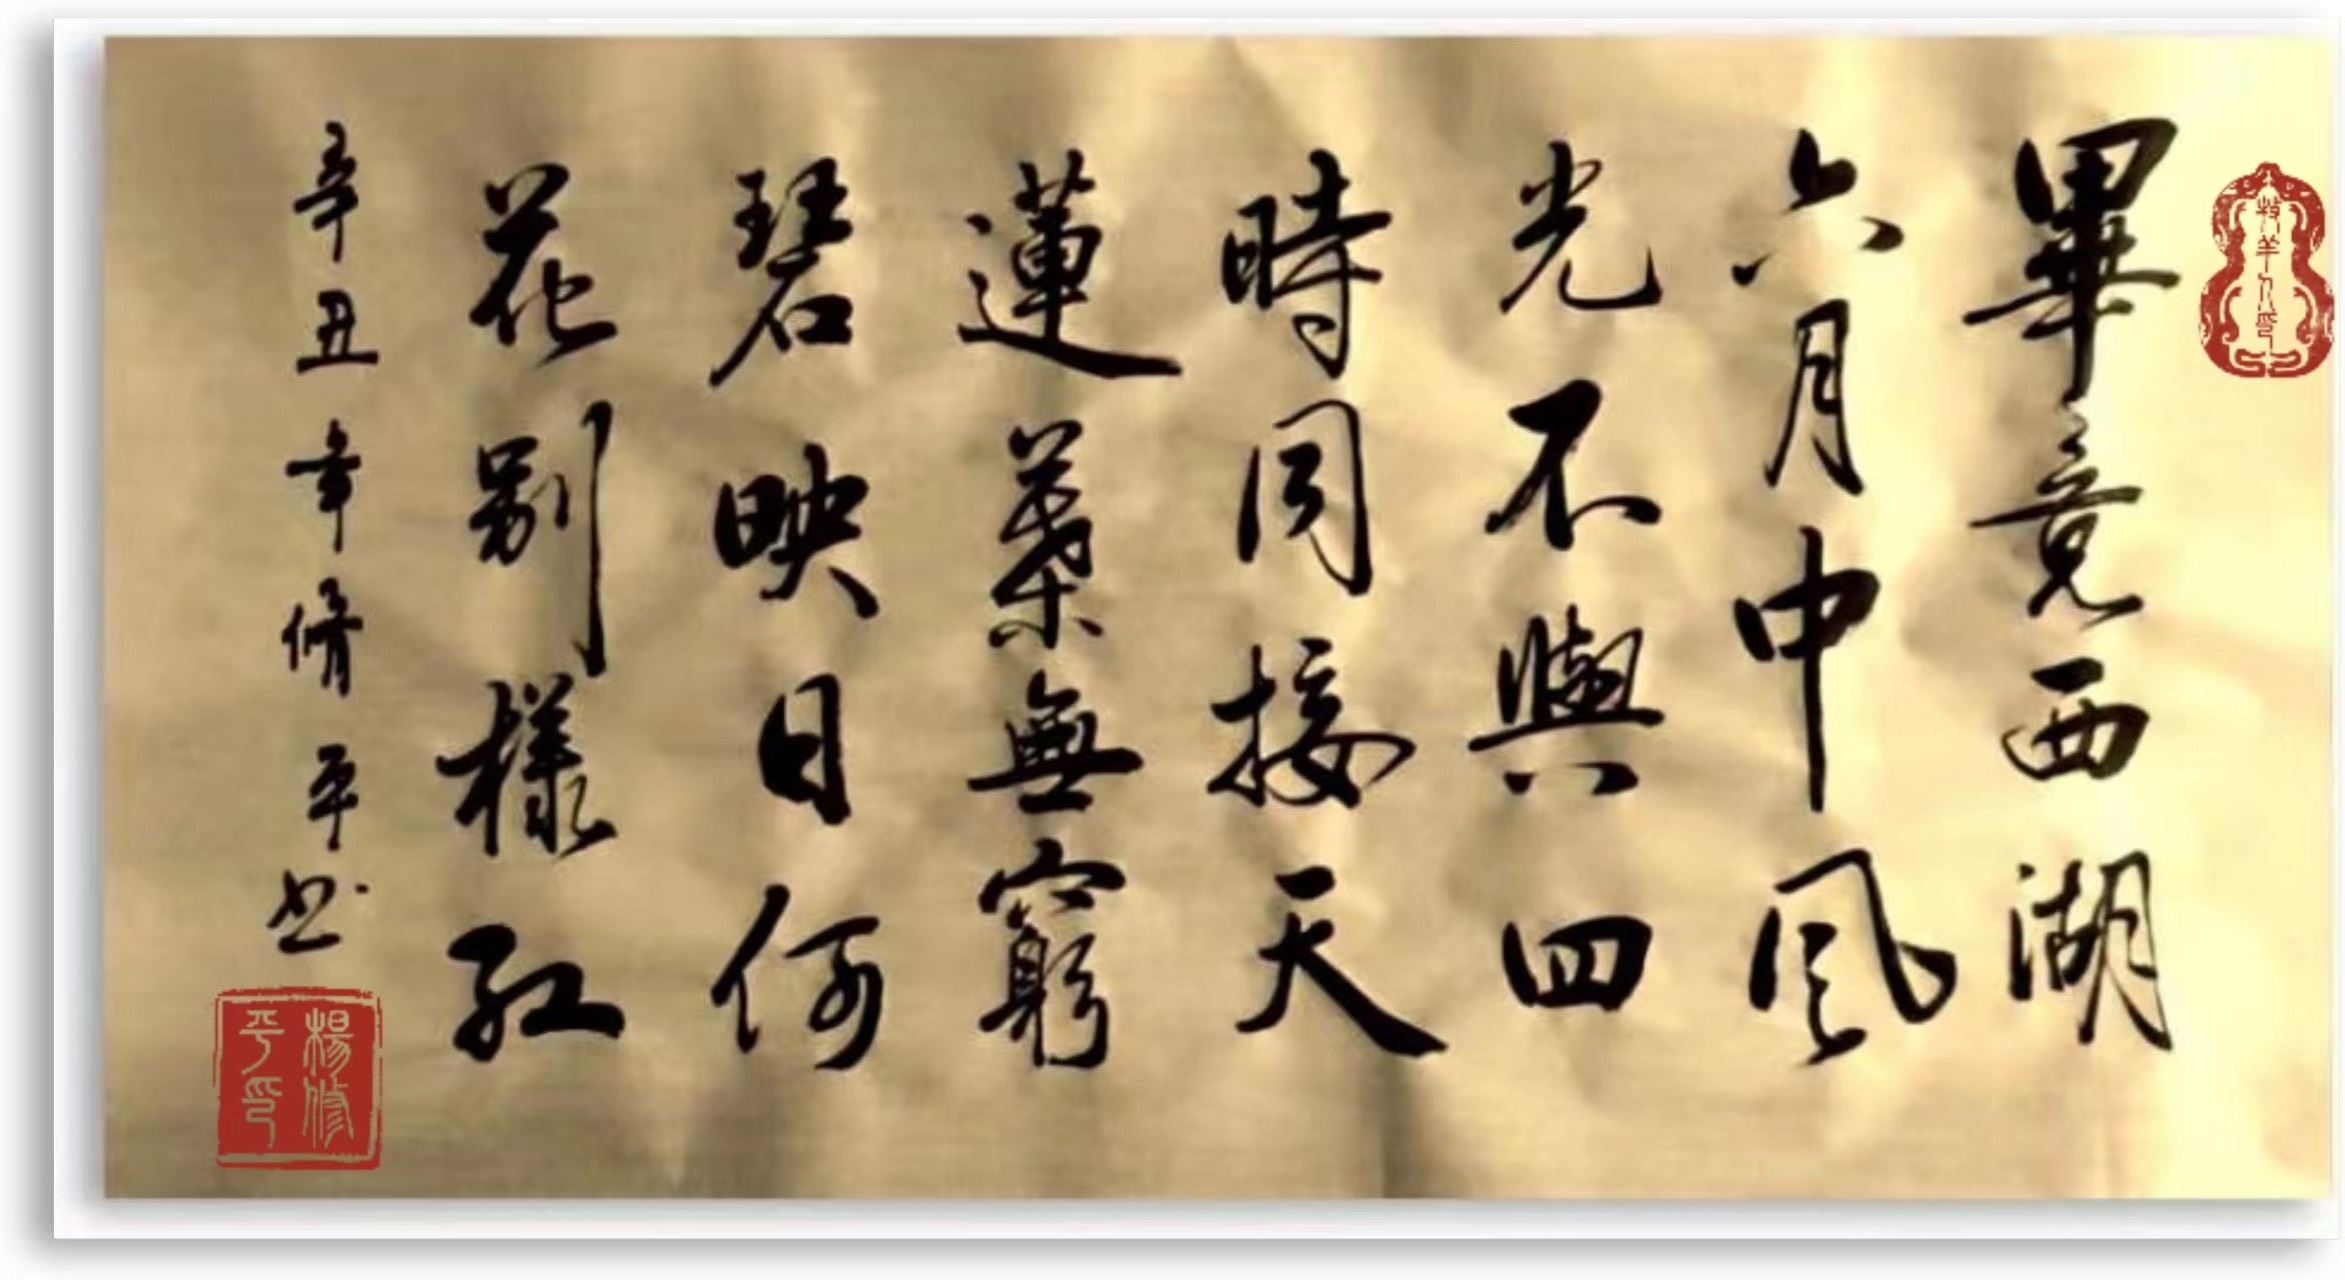 牧羊人印
畢竟西湖
六月中風
光不與四
時同接天
蓮葉無窮
碧映日何
花别樣紅
辛丑年脩平书
楊修平印